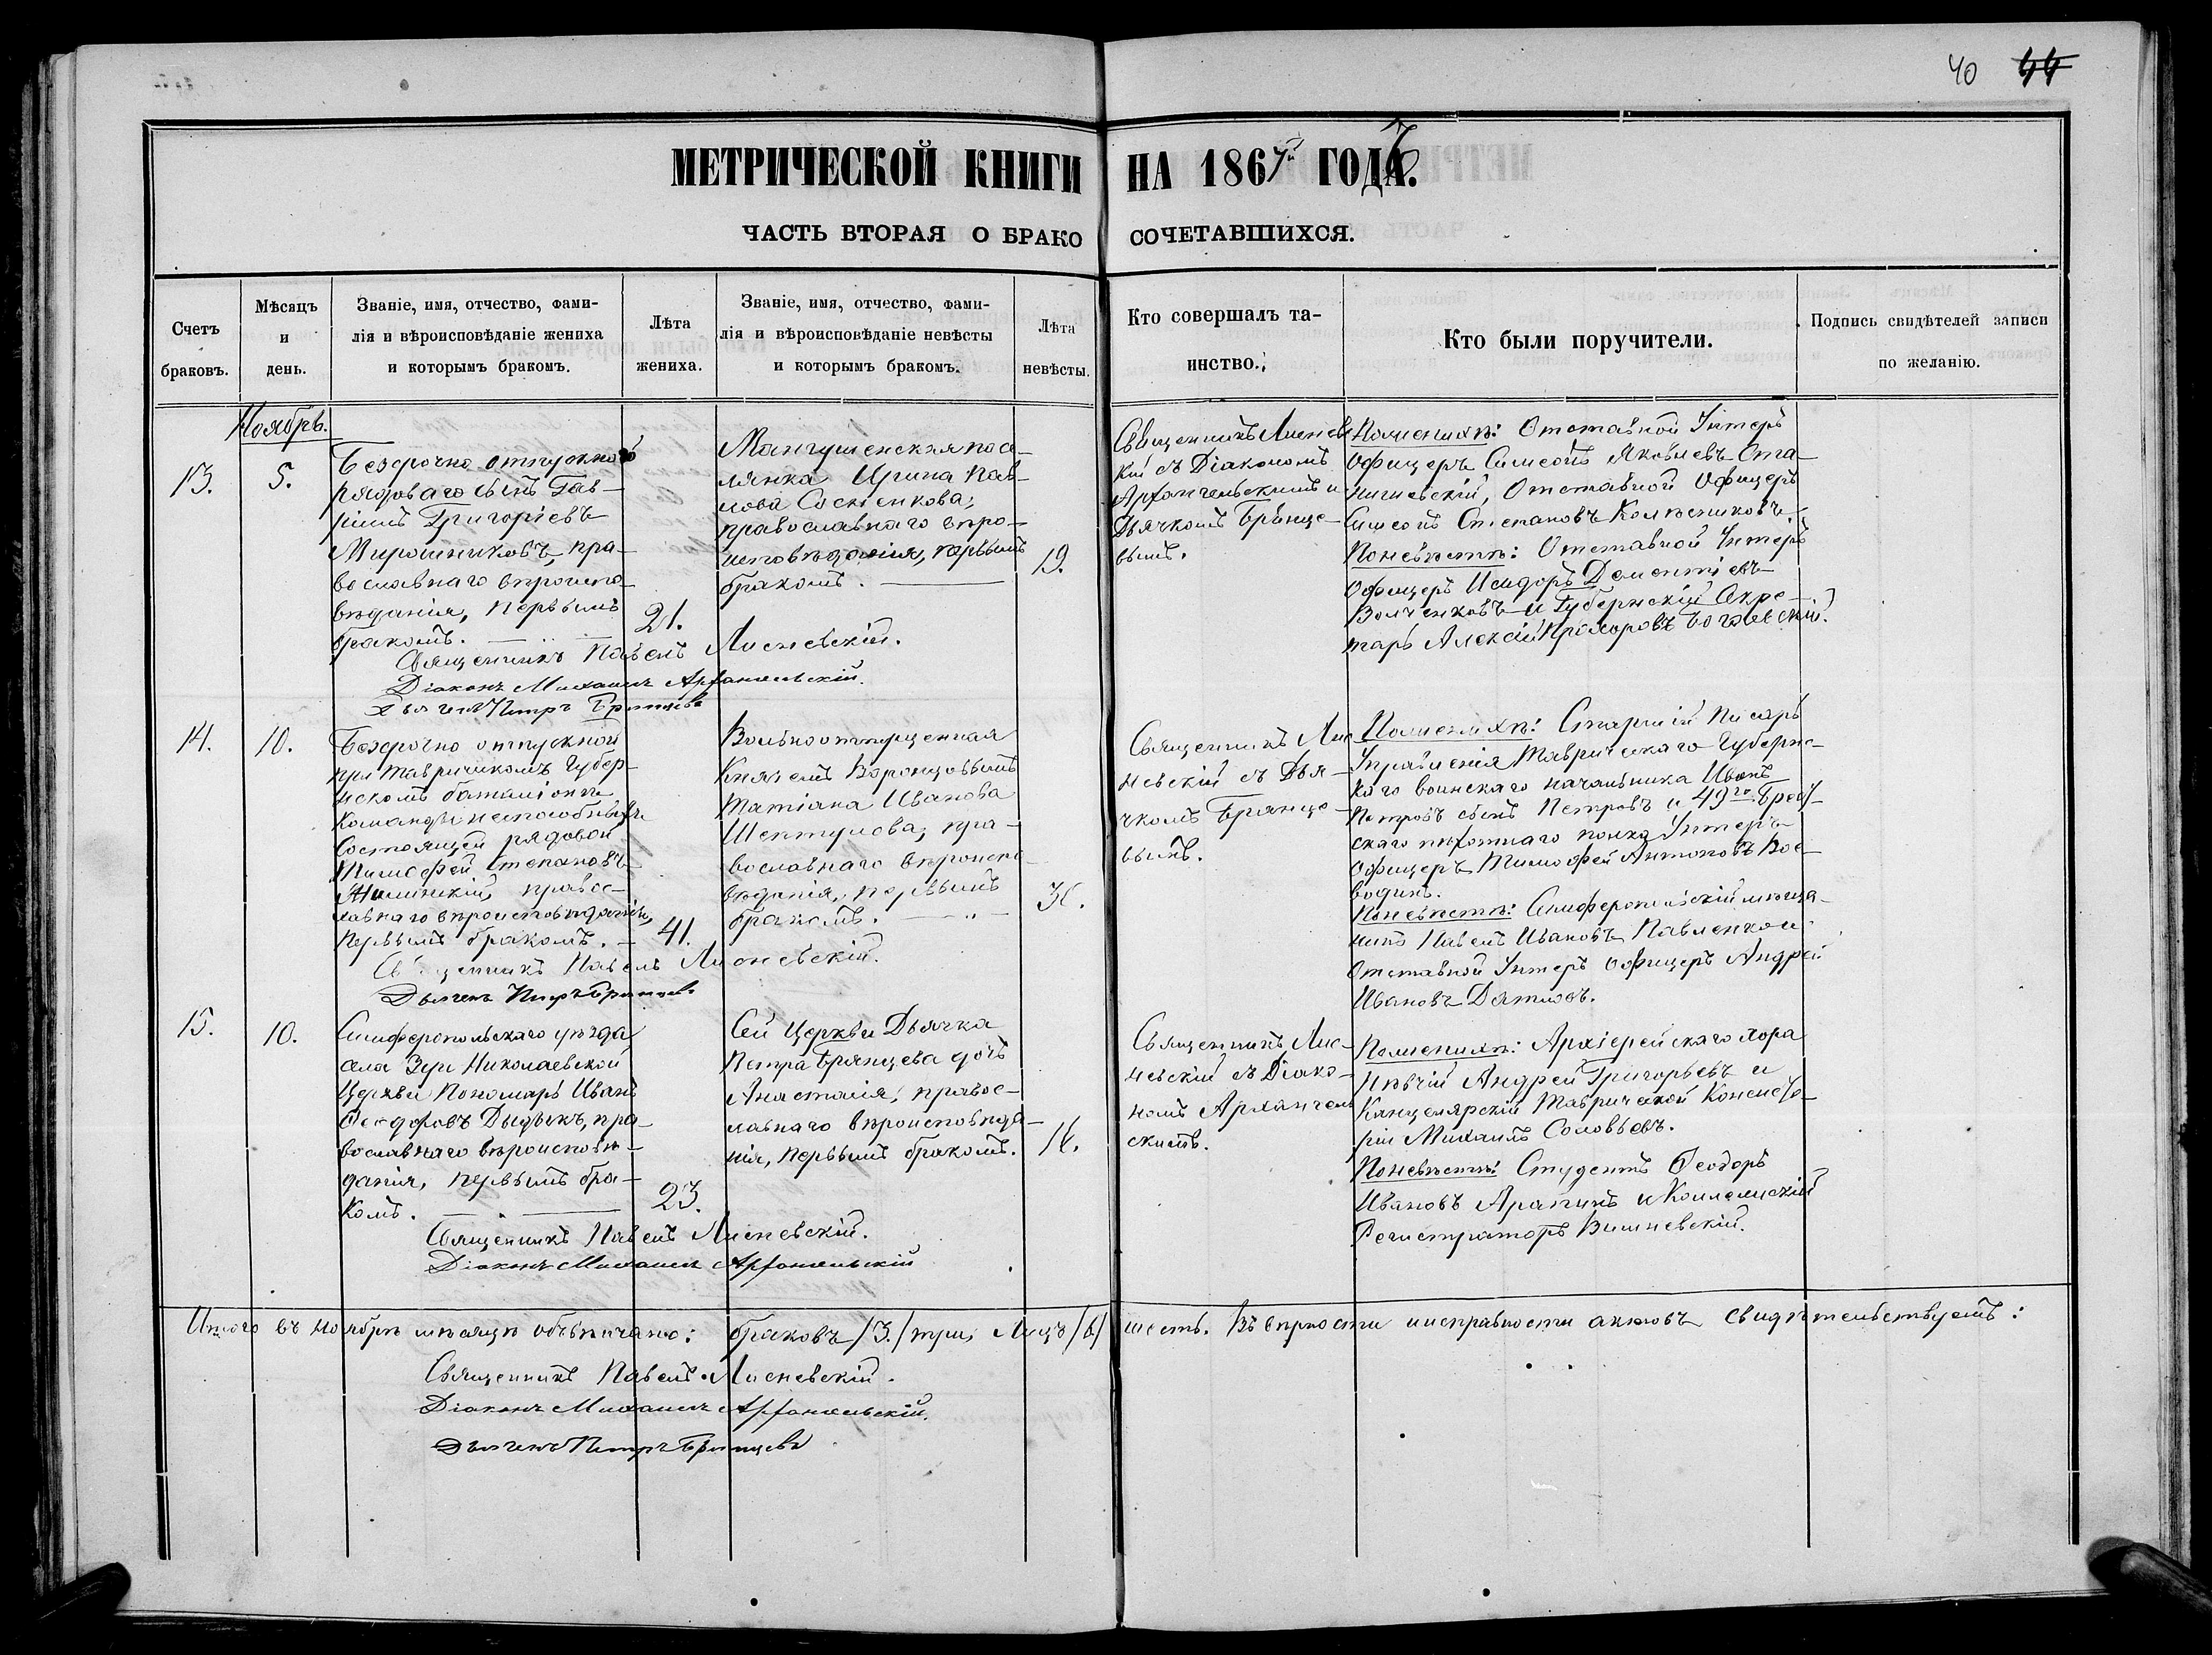 40 44
МЕТРИЧЕСКОЙ КНИГИ НА 1867й ГОДЪ.
ЧАСТЬ ВТОРАЯ О БРАКО СОЧЕТАВШИХСЯ.
Счетъ браковъ.
Мѣсяцъ и день.
Званіе, имя, отчество, фами-
лія и вѣроисповѣданіе жениха
и которымъ бракомъ.
Лѣта жениха.
Званіе, имя, отчество, фами-
лія и вѣроисповѣданіе невѣсты
и которымъ бракомъ.
Лѣта невѣсты.
Кто совершалъ та-
инство.
Кто были поручители.
Подпись свидѣтелей записи
по желанію.
Ноябрь.
13.
5.
Безсрочно отпускного
рядоваго сынъ Гав-
ріилъ Григоріевъ
Мирошниковъ, пра-
вославнаго вѣроиспо-
вѣданія, первымъ
бракомъ.
21.
Мангушенская посе-
лянка Ирина Пав-
лова Сосненкова;
православнаго вѣро-
исповѣданія, первымъ
бракомъ.
19.
Священникъ Лиснев-
кій съ Діакономъ
Архангельскимъ и
Дьячкомъ Брянце-
вымъ.
Поженихѣ: Отставной Унтеръ
Офицеръ Симеонъ Яковлевъ Ста-
, Отставной Офицеръ
Симеонъ Степановъ Колѣсниковъ
Поневѣстѣ: Отставной Унтеръ
Офицеръ Исидоръ Дементіевъ
Волченковъ и Губернскій Секре-
тарь Алексѣй Прохоровъ
Священникъ Павелъ Лисневскій.
Діаконъ Михаилъ Архангельскій.
Дьячекъ Петръ Брянцевъ
14.
10.
Безсрочно отпускной
при Таврическомъ Губер-
нскомъ баталіонѣ
Команды неспособныхъ
Состоящей рядовой
Тимофей Степановъ
правос-
лавнаго вѣроисповѣданія,
первымъ бракомъ.
41.
Вольноотпущенная
Княземъ Воронцовымъ
Татіана Иванова
Шептулова; пра-
вославнаго вѣроиспо-
вѣданія, первымъ
бракомъ.
Священникъ Лис-
невскій съ Дья-
чкомъ Брянце-
вымъ.
Поженихѣ: Старшій Писарь
Управленія Таврическаго Губернс-
каго воинскаго начальника Иванъ
Петровъ сынъ Петровъ и 49го Брест-
скаго пѣхотнаго полка Унтеръ-
Офицеръ Тимофей Антоновъ Вое-
водинъ.
Поневѣстѣ: Симферопольскій мѣща-
нинъ Павелъ Ивановъ Павленко и
Отставной Унтеръ Офицеръ Андрей
Ивановъ Дятловъ.
Священникъ Павелъ Лисневскій.
Дьячекъ Петръ Брянцевъ
15.
10.
Симферопольскаго уѣзда
села Зуи Николаевской
Церкви Пономарь Иванъ
Ѳеодоровъ Дицыкъ, пра-
вославнаго вѣроисповѣ-
данія, первымъ бра-
комъ.
23.
Сей Церкви Дьячка
Петра Брянцева дочь
Анастасія, правос-
лавнаго вѣроисповѣда-
нія, первымъ бракомъ.
Священникъ Лис-
невскій съ Діако-
номъ Архангель-
скимъ.
Поженихѣ: Архіерейскаго хора
пѣвчій Андрей Григорьевъ и
Канцелярскій Таврической Консисто-
ріи Михаилъ Соловьевъ.
Поневѣстѣ: Студентъ Ѳеодоръ
Ивановъ Арапинъ и Коллежскій
Регистраторъ Вишневскій.
Священникъ Павелъ Лисневскій.
Діаконъ Михаилъ Архангельскій
Итого въ ноябрѣ мѣсяцѣ обвѣнчано: браковъ /3./ три; Лицъ /6/ шесть. Въ вѣрности и исправности актовъ свидѣтельствуемъ:
Священникъ Павелъ Лисневскій.
Діаконъ Михаилъ Архангельскій.
Дьячекъ Петръ Брянцевъ